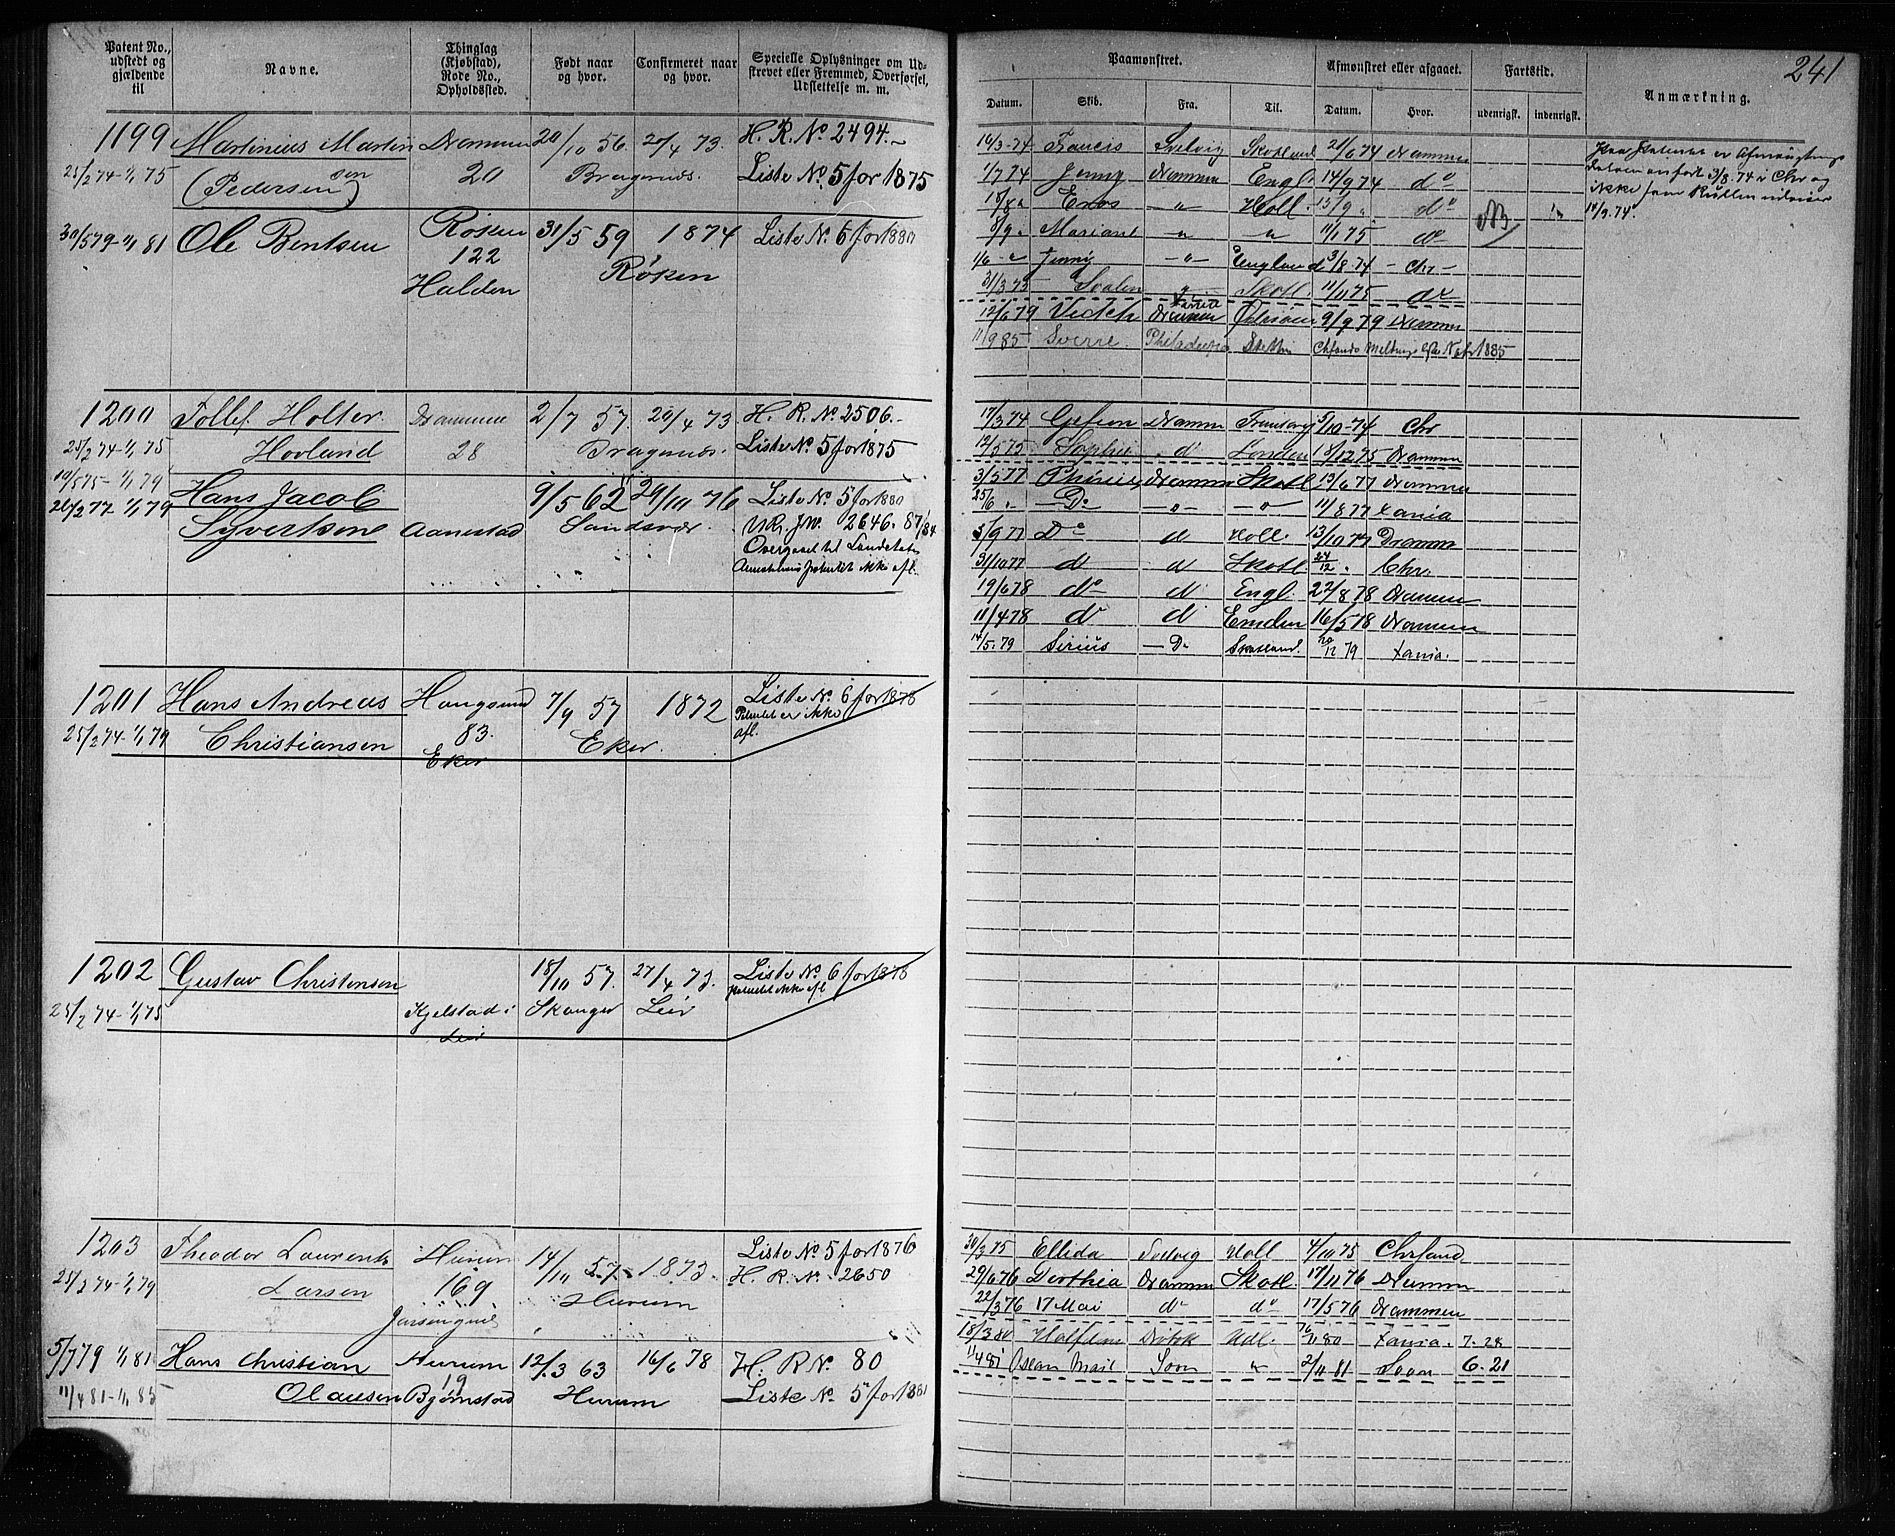 241
Patent No., udstedt og gjældende til
Navne.
Thinglag (Kjøbstad), Rode No., Opholdssted.
Født naar og hvor.
Confirmeret naar og hvor.
Specielle Oplysninger om Udstrevet eller Fremmed, Overførsel, Udslettelse m. m.
Paamønstret.
Afmønstret eller afgaaet.
Fartstid.
Anmærkning.
Datum. Skib. Fra. Til. Datum. Hvor. udenrigsk. indenrigsk.
1199 Martinius Martin Drammen 20/10 56. 20/4 73. H. R. No 2494.
25/2 74-1/1 75 (Pedersen) sen 20 Bragernes. Liste No. 5 for 1875
30/5 79-1/1 81 Ole Bentsen Røken 31/5 59 1874 Liste No. 6 for 1880
122 Røken
Halden
16/3-74 Francis Svelvig Skotland 21/6 74 Drammen
1/7 74 Jenny Drammen Engl. 14/9 74 do
Enos " Holl. 15/9 " do
8/9 " Mariane " " 11/1 75 do
1/6 - " Jenny - " - England 3/8 74 - Chr -
31/3 75 Svalen " Skotl. 11/11 75
12/6 79 Drammen 9/9 79 Drammen
11/9 85 Sverre. Philadelphia Stettin
1200 Tollef Holter Drammen 2/7 57. 20/4 73 H. R. No 2506.
25/2 74-1/1 75 Hovland 28 Bragernes. Liste No. 5 for 1875
10/5 75- 1/1 79
26/2 77 1/1 79 Hans Jacob 9/5 62 29/10 76 Liste No 5 for 1880
Syvertsen Aanestad Sandsvær. 2646. 87/84
17/3 74 Gefion Dramm 5/10-74 Chr
12/5 75 Sophie d London 13/12 75 Drammen
3/5 77 Phönix Dramm Skotl 13/6 77 Drammen
25/6 " Do - " - - " - 11/8 77 Xania
5/9 77 Do d Holl. 13/10 77 Dramm
31/10 77 d d Skotl. 24/12 " Chr.
19/6 78 do d Engl. 22/8 78 Drammen
11/4 78 do d Emden 16/5 78 Drammen
14/5. 79 Sirius - D- Skotland. 12 79 Xania.
1201 Hans Andreas Hougsund 7/9 57 1872 Liste No. 6 for 1878
25/2 74-1/1 79 Christiansen 83. Eker. Patentet er ikke afl.
Eker
1202 Gustav Christensen 18/10 57. 27/4 73. Liste No. 6 for 1878
25/2 74-1/1 75 Kjelstad i Skouger Lier Patentet ikke afl
Lier
1203 Theodor Laurents Hurum 14/10 57 1873. Liste No. 5 for 1876
25/2 74-1/1 79 Larsen 169 Hurum H. R. No. 2650
5/7 79 1/1 81 Hans Christian Hurum 12/3 63 16/6 78 H. R No. 80
11/4 81-1/1 85 Olausen 19 Bjørnstad Hurum Liste No. 5 for 1881
30/3 75 Ellida Svelvig Holl 4/10 75 Chrsand
29/6 76 Dorthea Dramm Skotl. 17/11 76 Dramm
22/3 76 17 Mai do do 17/5 76 Drammen
18/3 80 Halfdan Udl. 80 Xania. 7. 28
11/4 81 Oscan Mail Soon " 2/11 81 Soon 6. 21